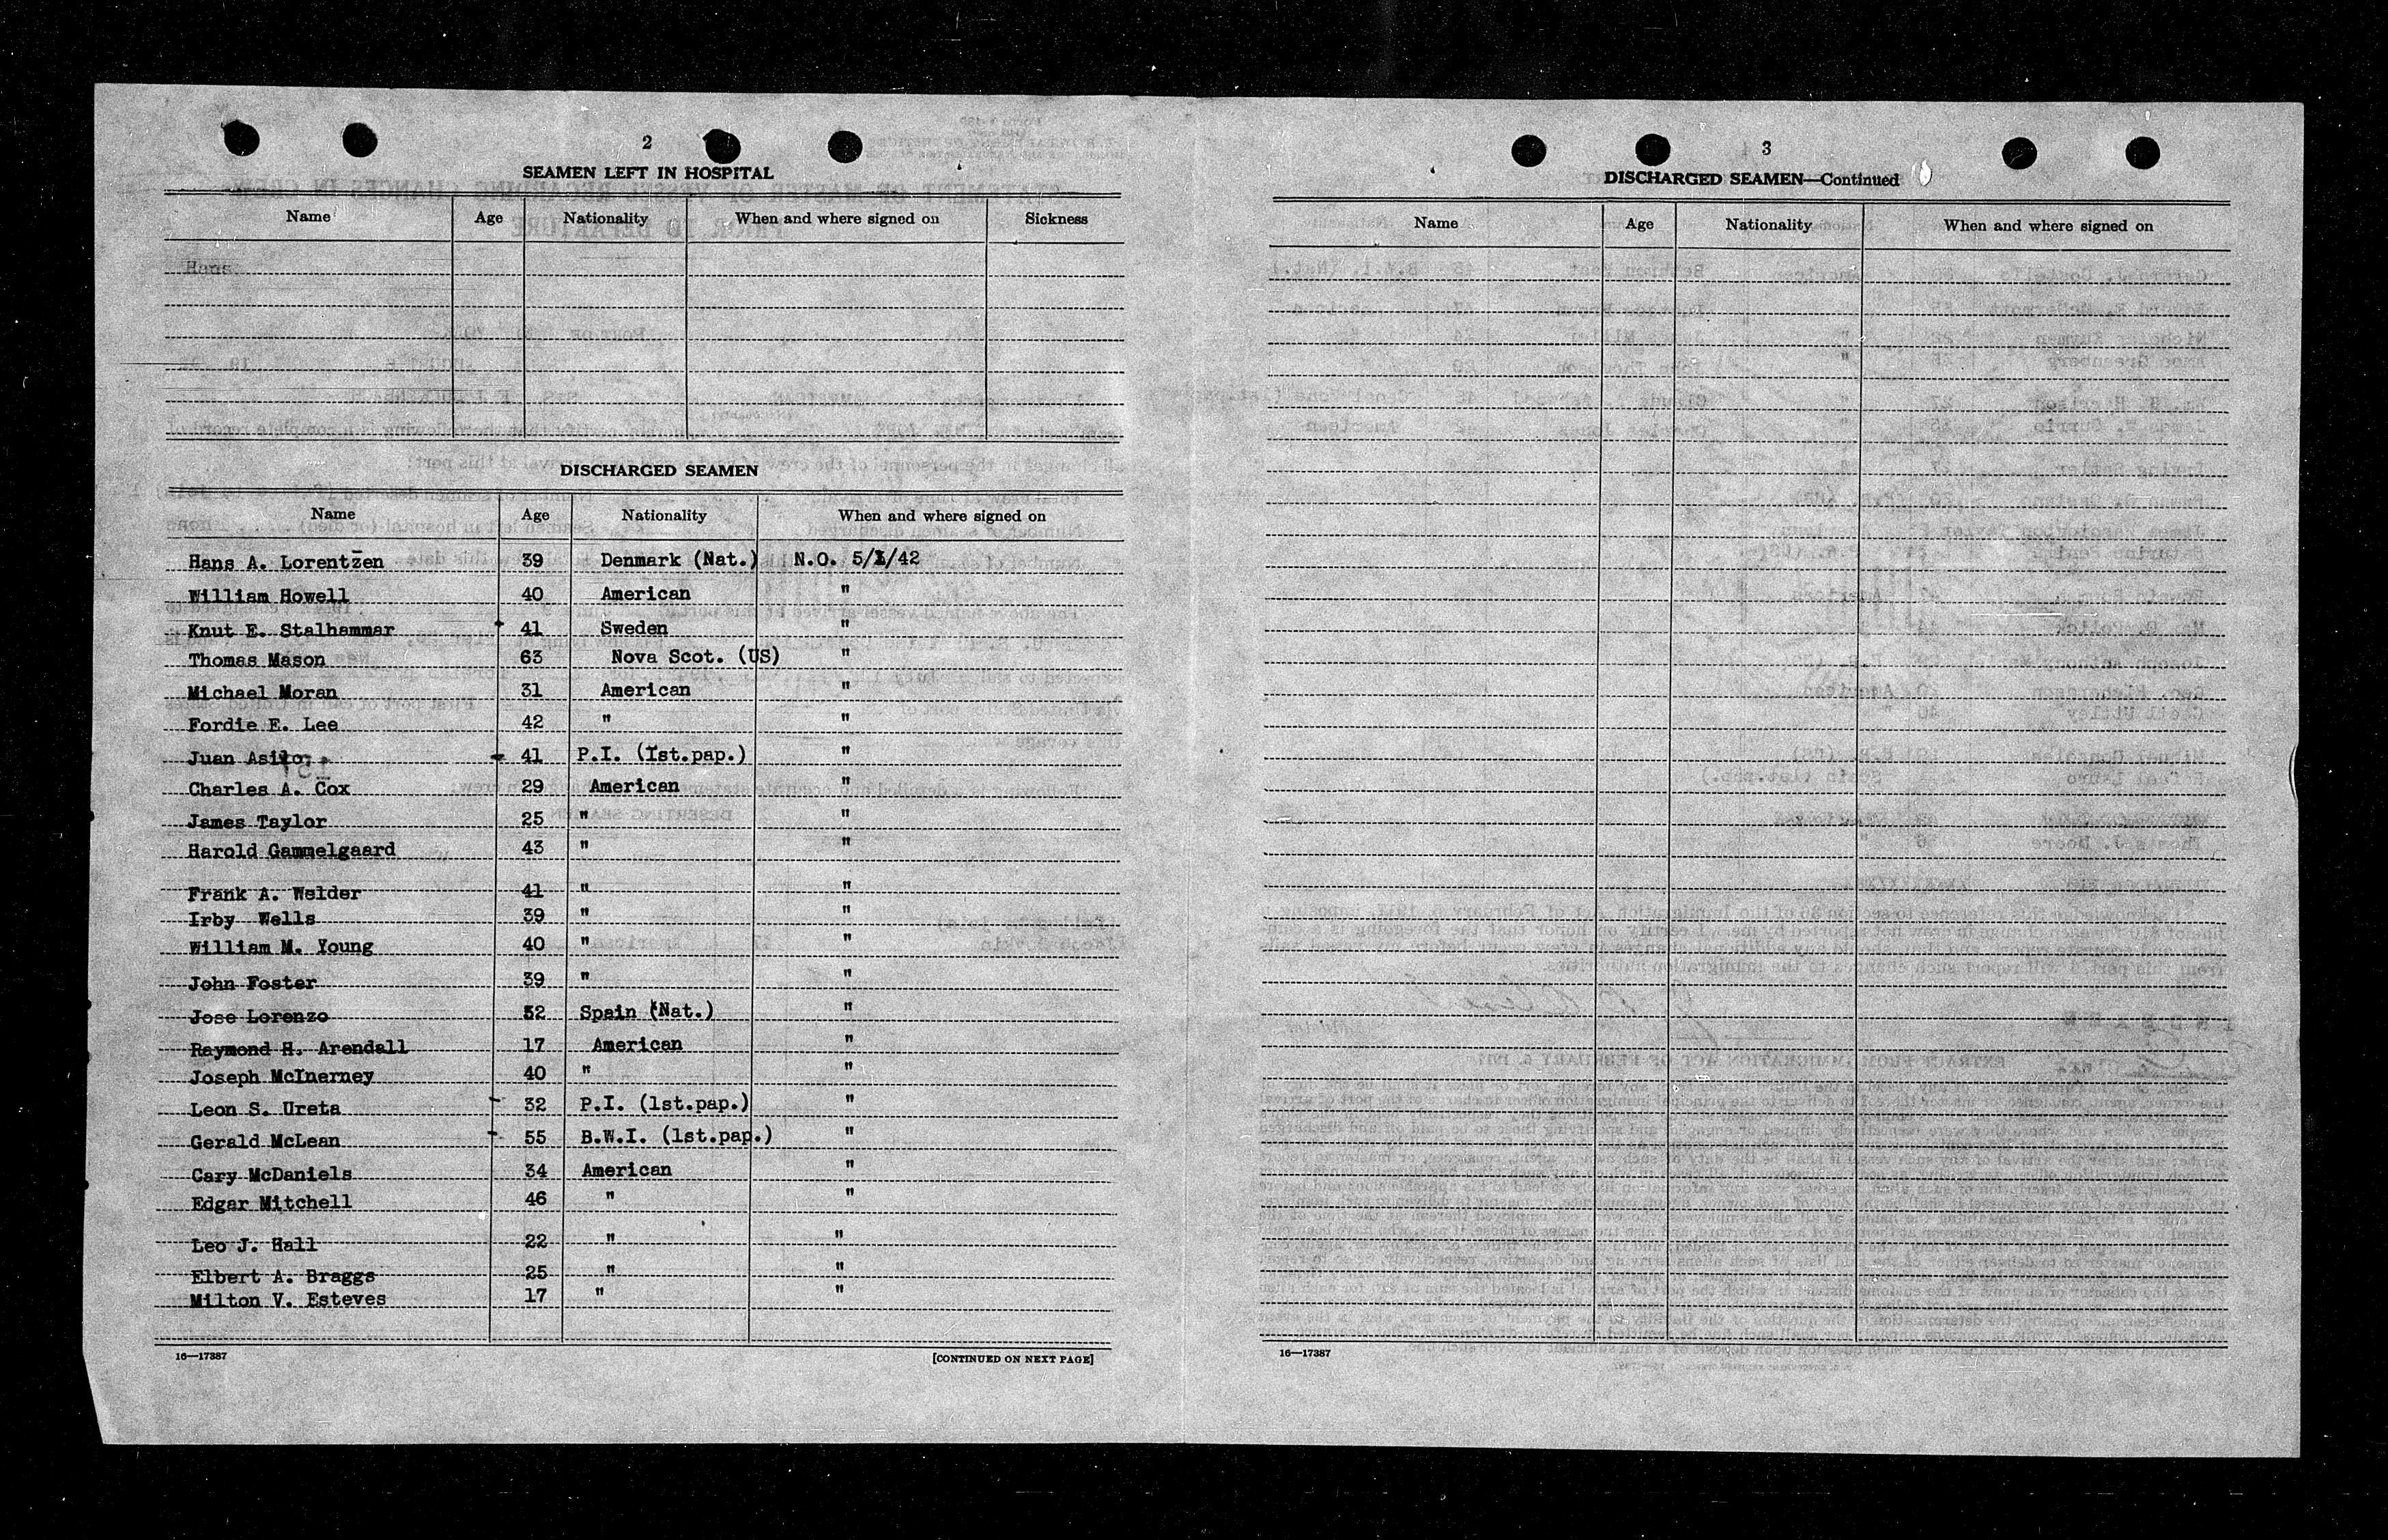 2
SEAMEN LEFT IN HOSPITAL
Name Age Nationality When and where signed on Sickness
DISCHARGED SEAMEN
Name Age Nationality When and where signed on
Hans A. Lorentzen 39 Denmark (Nat.) N.O. 5/1/42
William Howell 40 American "
Knut E. Stalhammar 41 Sweden "
Thomas Mason 63 Nova Scot. (US) "
Michael Moran 31 American "
Fordie E. Lee 42 " "
Juan Asilo 41 P.I. (1st.pap.) "
Charles A. Cox 29 American "
James Taylor 25 " "
Harold Gammelgaard 43 " "
Frank A. Welder 41 " "
Irby Wells 39 " "
William M. Young 40 " "
John Foster 39 " "
Jose Lorenzo 52 Spain (Nat.) "
Raymond H. Arendall 17 American "
Joseph McInerney 40 " "
Leon S. Ureta 32 P.I. (1st.pap.) "
Gerald McLean 55 B.W.I. (1st.pap.) "
Cary McDaniels 34 American "
Edgar Mitchell 46 " "
Leo J. Hall 22 " "
Elbert A. Braggs 25 " "
Milton V. Esteves 17 " "
16—17387 [CONTINUED ON NEXT PAGE]
3
DISCHARGED SEAMEN—Continued
Name Age Nationality When and where signed on
16—17387